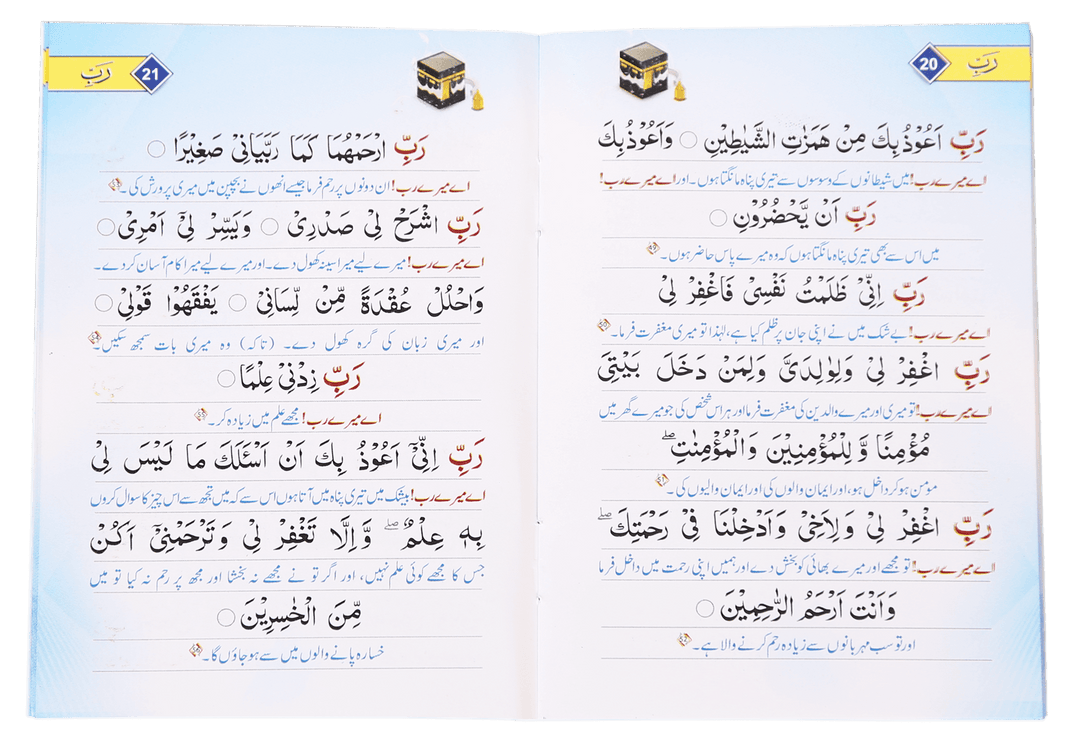 رَبِّ
20
رَبِّ اَعُوْذُ بِكَ مِنْ هَمَزٰتِ الشَّيٰطِيْنِ ○ وَاَعُوْذُ بِكَ
اے میرے رب! میں شیطانوں کے وسوسوں سے تیری پناہ مانگتا ہوں۔ اور اے میرے رب!
رَبِّ اَنْ يَّحْضُرُوْنِ ○
میں اس سے بھی تیری پناہ مانگتا ہوں کہ وہ میرے پاس حاضر ہوں۔
رَبِّ اِنِّىْ ظَلَمْتُ نَفْسِىْ فَاغْفِرْ لِىْ
اے میرے رب! بے شک میں نے اپنی جان پر ظلم کیا ہے، لہٰذا تو میری مغفرت فرما۔
رَبِّ اغْفِرْ لِىْ وَلِوٰلِدَىَّ وَلِمَنْ دَخَلَ بَيْتِىَ
اے میرے رب! تو میری اور میرے والدین کی مغفرت فرما اور ہر اس شخص کی جو میرے گھر میں
مُؤْمِنًا وَّ لِلْمُؤْمِنِيْنَ وَالْمُؤْمِنٰتِ ؕ
مومن ہو کر داخل ہو، اور ایمان والوں کی اور ایمان والیوں کی۔
رَبِّ اغْفِرْ لِىْ وَلِاَخِىْ وَاَدْخِلْنَا فِىْ رَحْمَتِكَ ۖ
اے میرے رب! تو مجھے اور میرے بھائی کو بخش دے اور ہمیں اپنی رحمت میں داخل فرما
وَاَنْتَ اَرْحَمُ الرّٰحِمِيْنَ ○
اور تو سب مہربانوں سے زیادہ رحم کرنے والا ہے۔
رَبِّ
21
رَبِّ ارْحَمْهُمَا كَمَا رَبَّيَانِىْ صَغِيْرًا ○
اے میرے رب! ان دونوں پر رحم فرما جیسے انھوں نے بچپن میں میری پرورش کی۔
رَبِّ اشْرَحْ لِىْ صَدْرِىْ ○ وَيَسِّرْ لِىْٓ اَمْرِىْ ○
اے میرے رب! میرے لیے میرا سینہ کھول دے۔ اور میرے لیے میرا کام آسان کر دے۔
وَاحْلُلْ عُقْدَةً مِّنْ لِّسَانِىْ ○ يَفْقَهُوْا قَوْلِىْ ○
اور میری زبان کی گرہ کھول دے۔ (تاکہ) وہ میری بات سمجھ سکیں۔
رَبِّ زِدْنِىْ عِلْمًا ○
اے میرے رب! مجھے علم میں زیادہ کر۔
رَبِّ اِنِّىْٓ اَعُوْذُ بِكَ اَنْ اَسْـَٔلَكَ مَا لَيْسَ لِىْ
اے میرے رب! بیشک میں تیری پناہ میں آتا ہوں اس سے کہ میں تجھ سے اس چیز کا سوال کروں
بِهٖ عِلْمٌ ۖ وَّاِلَّا تَغْفِرْ لِىْ وَتَرْحَمْنِىْٓ اَكُنْ
جس کا مجھے کوئی علم نہیں، اور اگر تو نے مجھے نہ بخشا اور مجھ پر رحم نہ کیا تو میں
مِّنَ الْخٰسِرِيْنَ ○
خسارہ پانے والوں میں سے ہو جاؤں گا۔